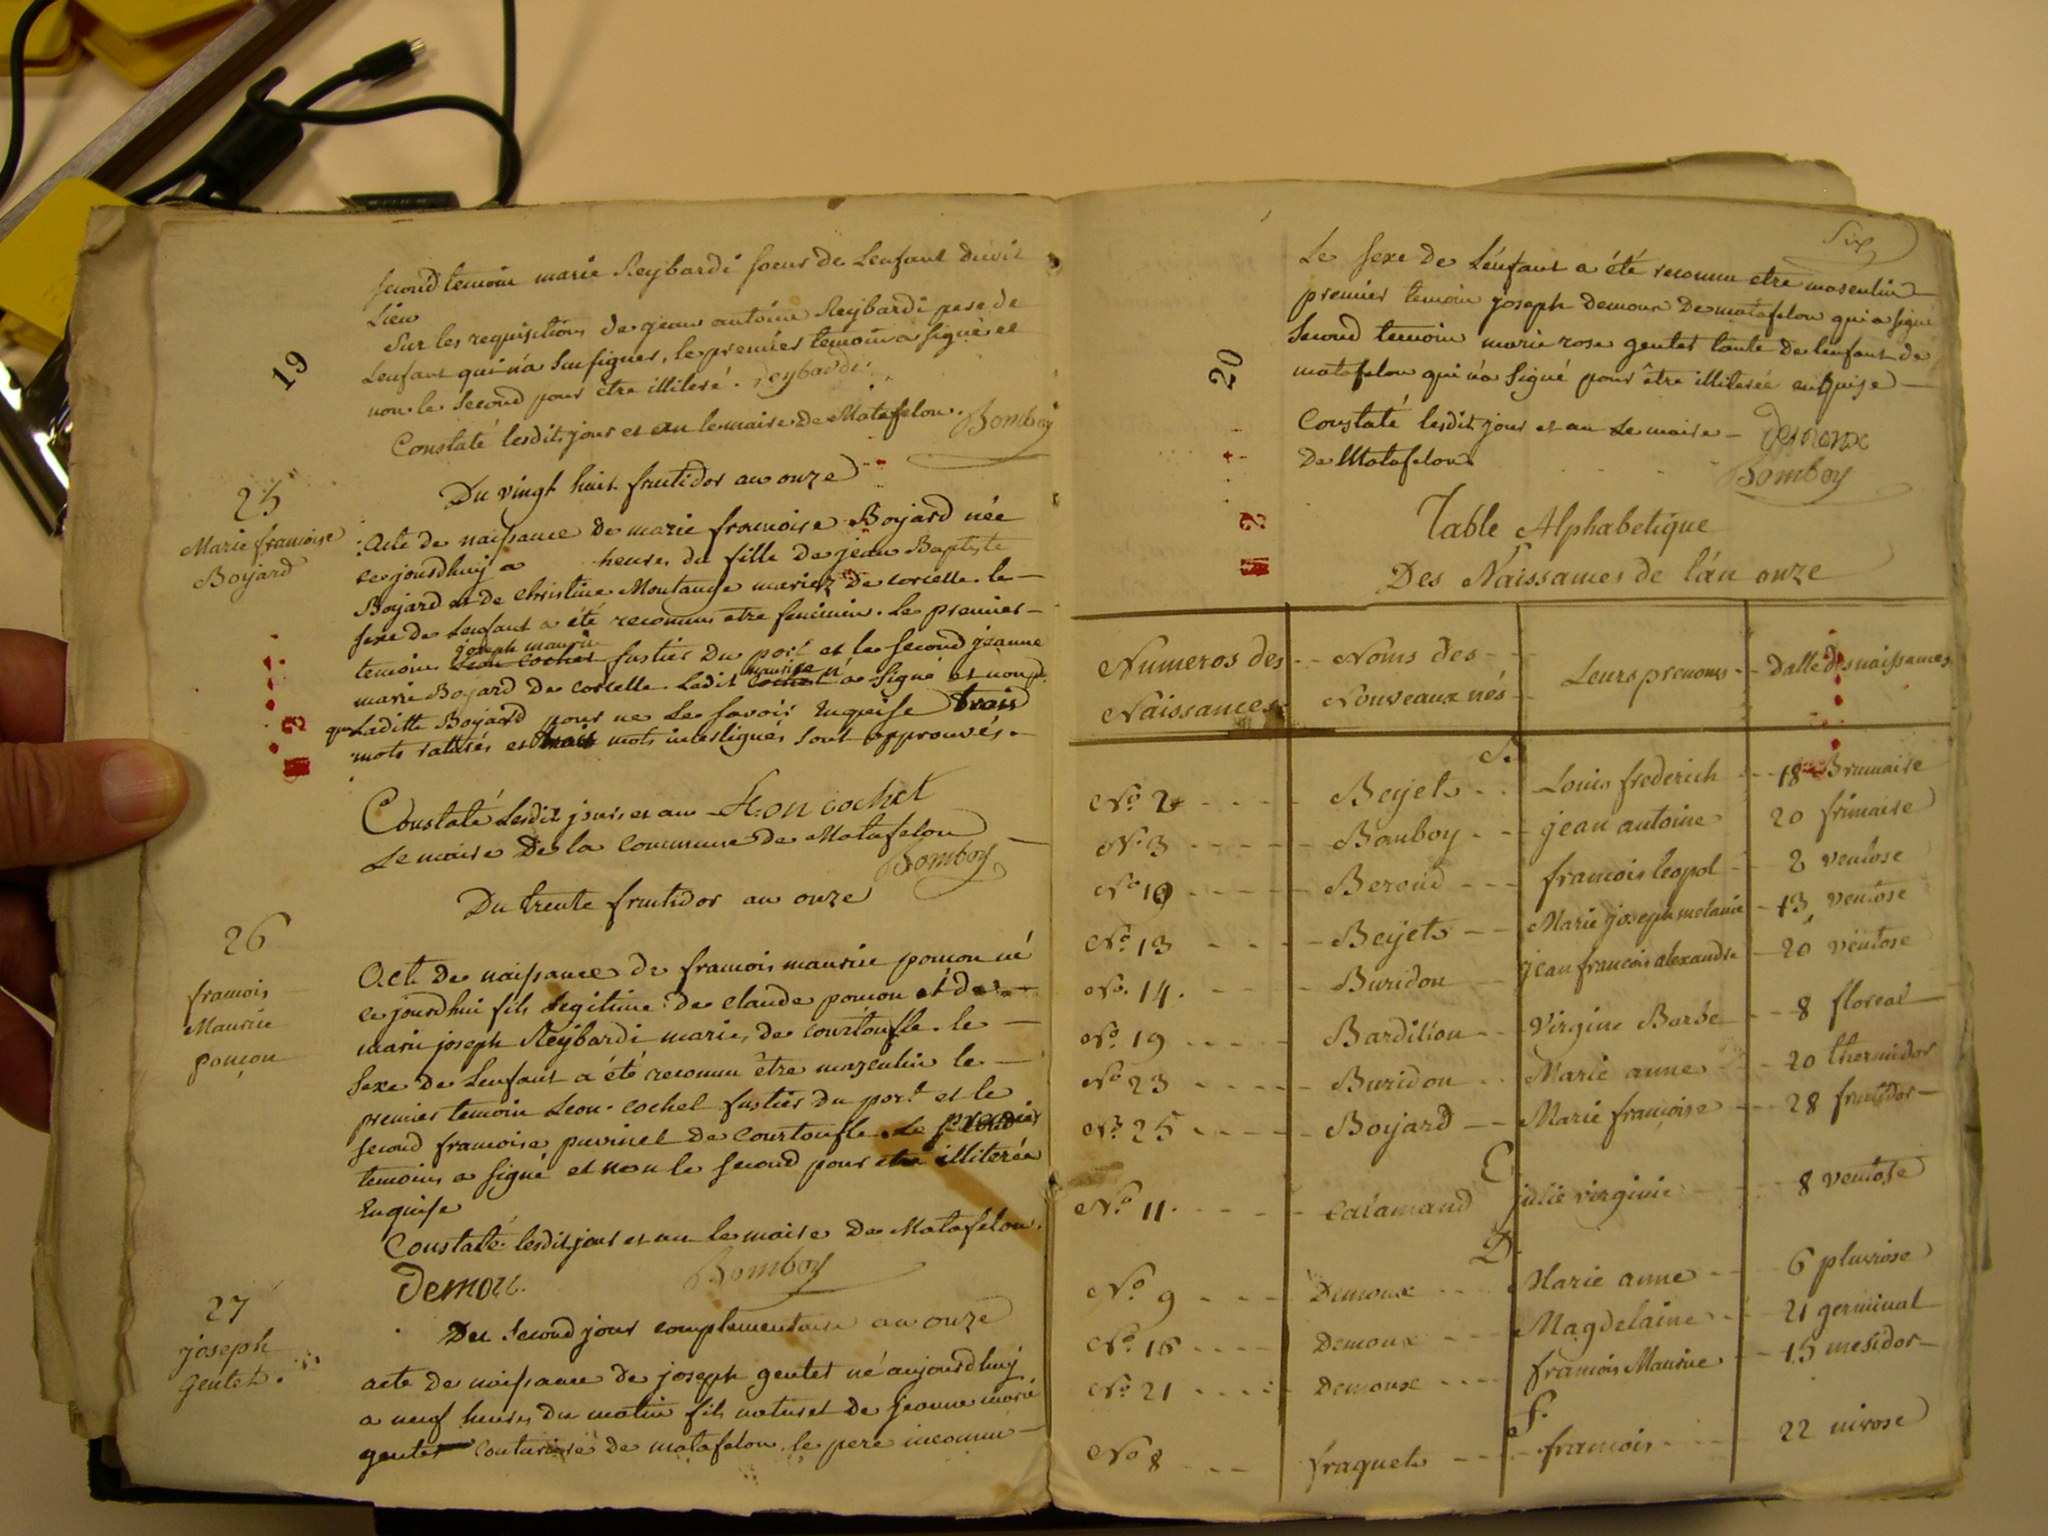 19
second temoin marie Reybardi soeur de Lenfant dudit
Lieu
Sur les requisitions de jean antoine Reybardi pere de
Lenfant qui n'a su signer, le premier temoin a signé et
non le second pour être illiteré. reybardi.
Constaté lesdits jour et an le maire de Matafelon. Bomboy
Du vingt huit fructidor an onze
25
Marie francoise
Boyard
Acte de naissance de marie francoise Boyard née
ce jourdhuy a heure du fille de jean Baptiste
Boyard et de Christine Montange mariez de corcelle. le
sexe de Lenfant a été reconnu etre feminin. Le premier
joseph maurin
temoin Leon Cochet fustier du port et le second jeanne
marie Bojard de corcelle. Ledit Cochet n' a signé et non
que Laditte Boyard pour ne Le savoir Enquise trois
mots ratturés et trois mots interlignés sont approuvés.
Constaté Lesdits jours et an Leon cochet
Le maire De la Commune de Matafelon
Bomboy
Du trente fructidor an onze
26
francois
Maurice
ponçon
Acte De naissance de francois maurice poncon né
ce jourdhui fils Legitime de claude poncon et de
marie joseph Reybardi mariés de courtoufle. le
Sexe de Lenfant a été reconnu être masculin le
premier temoin Leon cochet fustier du port et le
second francoise puvinel de Courtoufle. Le premier
temoin a signé et non le second pour etre illiterée
Enquise
Constaté lesdits jour et an le maire De Matafelon.
Demoux. Bomboy
27
joseph
gentet.
Du Second jour complementaire an onze
acte de naissance de joseph gentet né aujourdhuy
a neuf heures du matin fils naturel de jeanne marie
gentet couturiere de matafelon. le pere inconnu
20
Six
Le sexe de Lenfant a été reconnu etre masculin
premier temoin joseph demoux De matafelon qui a signé
Second temoin marie rose gentet tante de lenfant de
matafelon qui n'a signé pour être illiterée enquise
Constaté lesdits jour et an Le maire - Demoux
De Matafelon. Bomboy
Table Alphabetique
Des Naissances de l'an onze
Numeros des Noms des Leurs prenoms Datte des naissances
Naissances Nouveaux nés
B.
No. 2 Beyet Louis frederich 18 Brumaire
No. 3 Bomboy jean antoine 20 frimaire
No 10 Beroud francois leopol 2 ventose
No. 13 Beyet Marie joseph melanie 13 ventose
No. 14. Buridon jean francois alexandre 20 ventose
No. 19 Bardition Virgine Barbe 8 floreal
No. 23 Buridon Marie anne 20 thermidor
No. 25 Boyard Marie françoise 28 fructidor
C
No. 11. Calamand julie virginie 8 ventose
D.
No. 9 Demoux Marie anne 6 pluviose
No. 16 Demoux Magdelaine 21 germinal
No. 21 Demoux francois Maurice 15 mesidor
F.
No 8 fraquet francois 22 nivose